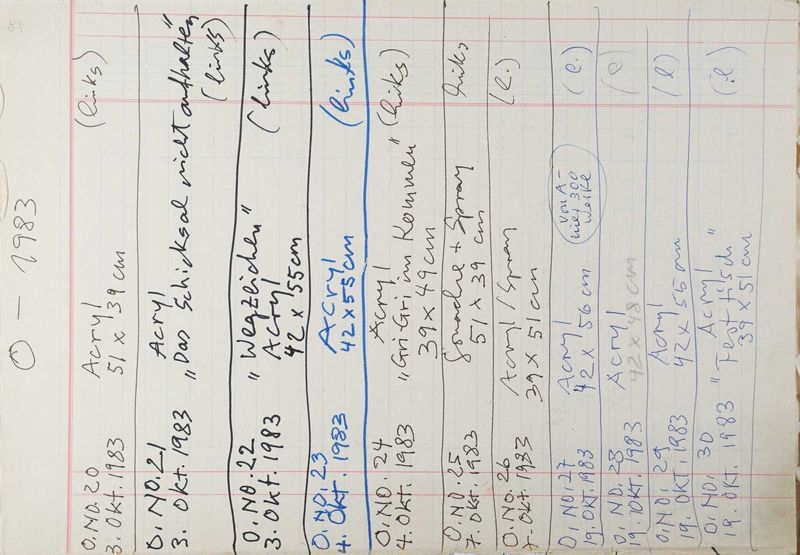 O – 1983
O.NO.20 Acryl (links)
3. Okt. 1983 51 x 39 cm
O.NO.21 Acryl
3. Okt. 1983 „Das Schicksal nicht aufhalten"
(links)
O.NO.22 „Wegzeichen" (links)
3. Okt. 1983 Acryl
42 x 55 cm
O.NO.23 Acryl (links)
4. Okt. 1983 42 x 55 cm
O.NO.24 Acryl (links)
4. Okt. 1983 „Gri Gri im Kommen"
39 x 49 cm
O.NO.25 Gouache + Spray links
7. Okt. 1983 51 x 39 cm
O.NO.26 Acryl / Spray (l.)
7. Okt. 1983 39 x 51 cm
O.NO.27 Acryl (l.)
19. Okt. 1983 42 x 56 cm
von A–
300
Werke
O.NO.28 Acryl (l)
19. Okt. 1983 42 x 48 cm
O.NO.29 Acryl (l)
19. Okt. 1983 42 x 55 cm
O.NO.30 Acryl (l)
19. Okt. 1983 „Festtisch"
39 x 51 cm